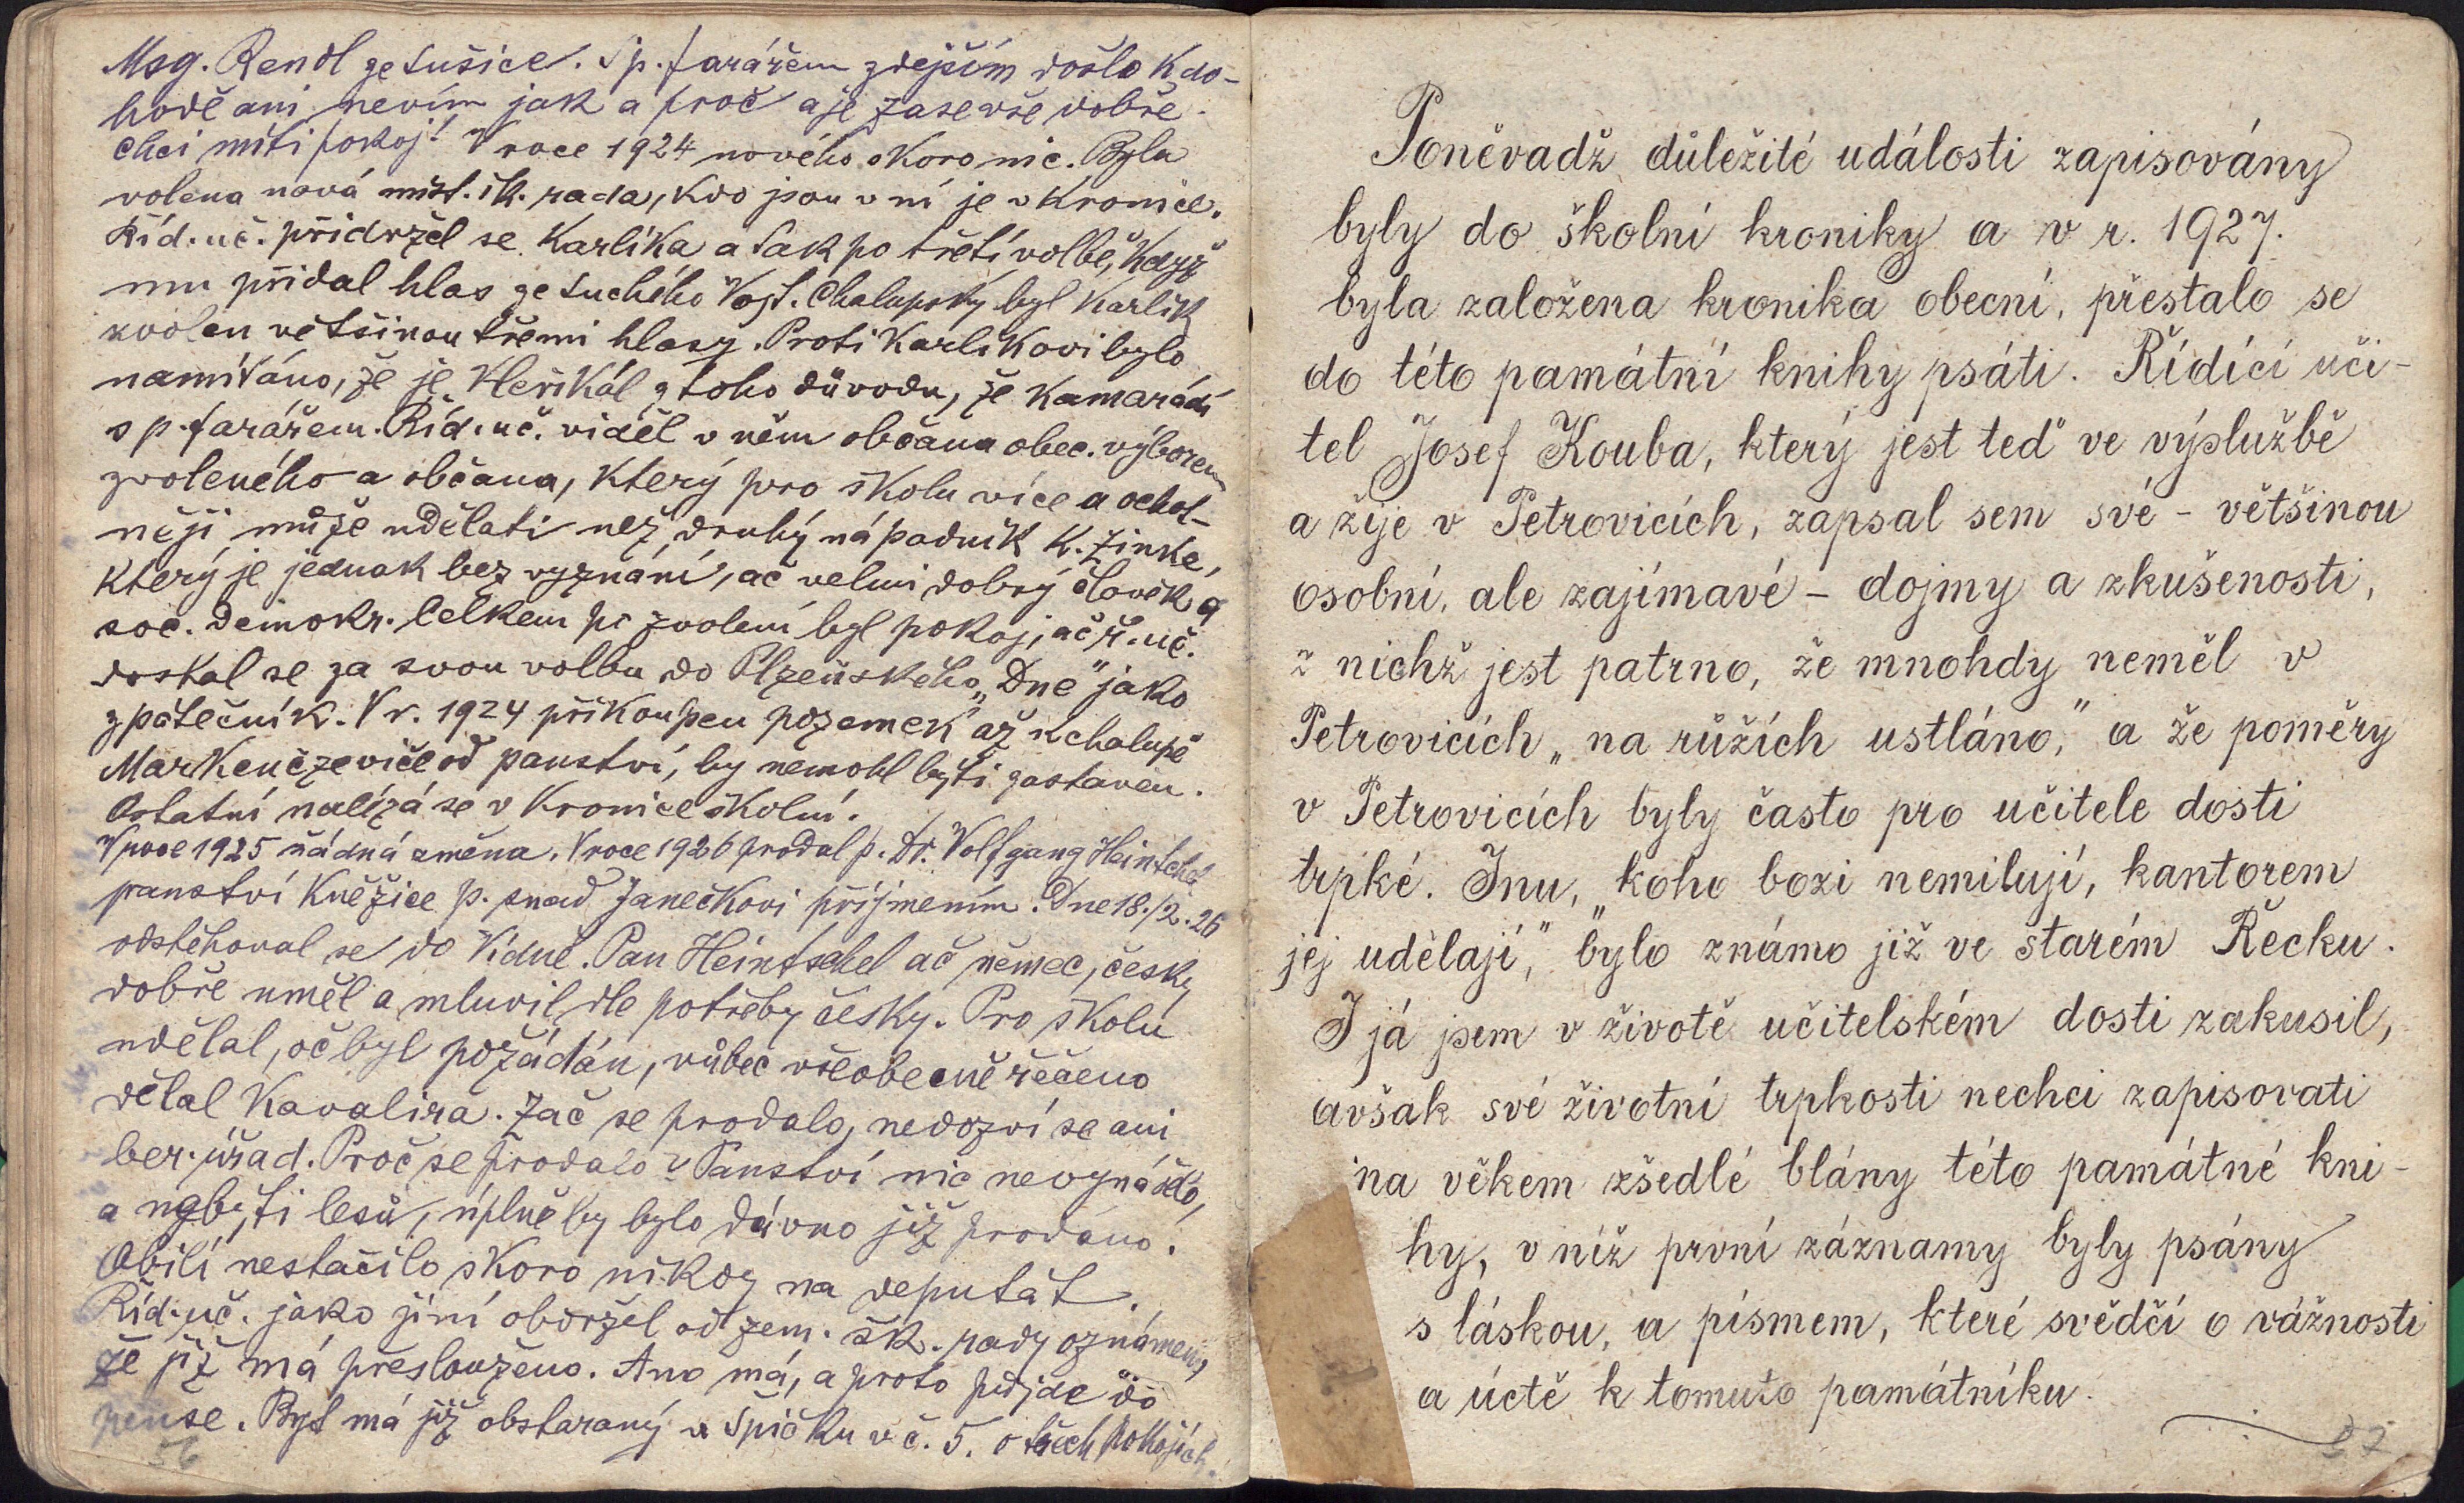 Msg. Rendl ze Sušice. S p. farářem zdejším došlo k do-
hodě ani nevím jak a proč a je zase vše dobře.
Chci míti pokoj! V roce 1924 nového skoro nic. Byla
volena nová míst. šk. rada, kdo jsou v ní je v kronice.
Říd. uč. přidržel se Karlíka a tak po třetí volbě, když
mu přidal hlas ze Suchého Vojt. Chalupský byl Karlík
zvolen většinou třemi hlasy. Proti Karlíkovi bylo
namítáno, že je klerikál z toho důvodu, že kamarádí
s p. farářem. Říd. uč. viděl v něm občana obec. výborem
zvoleného a občana, který pro školu více a ochot-
něji může udělati než druhý nápadník K. Zinke,
který je jednak bez vyznání, ač velmi dobrý člověk a
soc. demokr. Celkem po zvolení byl pokoj, ač ř. uč.
dostal se za svou volbu do Plzeňského „Dne" jako
zpátečník. V r. 1924 přikoupen pozemek až k chalupě
Markenčzeviče od panství, by nemohl býti zastaven.
Ostatní nalézá se v kronice školní.
V roce 1925 žádná změna. V roce 1926 prodal p. Dr. Volfgang Heintschel
panství Kněžice p. snad Janečkovi příjmením. Dne 18./2. 26
odstěhoval se do Vídně. Pan Heintschel ač němec, česky
dobře uměl a mluvil dle potřeby česky. Pro školu
udělal, oč byl požádán, vůbec všeobecně řečeno
dělal kavalíra. Zač se prodalo, nedozví se ani
ber. úřad. Proč se prodalo? Panství nic nevynášelo,
a nebýti lesů, úplně by bylo dávno již prodáno.
Obilí nestačilo skoro nikdy na deputát.
Říd. uč. jako jiní obdržel od zem. šk. rady oznámení,
že již má přeslouženo. Ano má, a proto půjde do
pense. Byt má již obstaraný v Špičku v č. 5. o třech pokojích.
56
Poněvadž důležité události zapisovány
byly do školní kroniky a v r. 1927.
byla založena kronika obecní, přestalo se
do této památní knihy psáti. Řídící uči-
tel Josef Kouba, který jest teď ve výslužbě
a žije v Petrovicích, zapsal sem své – většinou
osobní, ale zajímavé – dojmy a zkušenosti,
z nichž jest patrno, že mnohdy neměl v
Petrovicích „na růžích ustláno," a že poměry
v Petrovicích byly často pro učitele dosti
trpké. Inu, „koho bozi nemilují, kantorem
jej udělají," bylo známo již ve starém Řecku.
I já jsem v životě učitelském dosti zakusil,
avšak své životní trpkosti nechci zapisovati
na věkem zšedlé blány této památné kni-
hy, v níž první záznamy byly psány
s láskou, a písmem, které svědčí o vážnosti
a úctě k tomuto památníku.
57